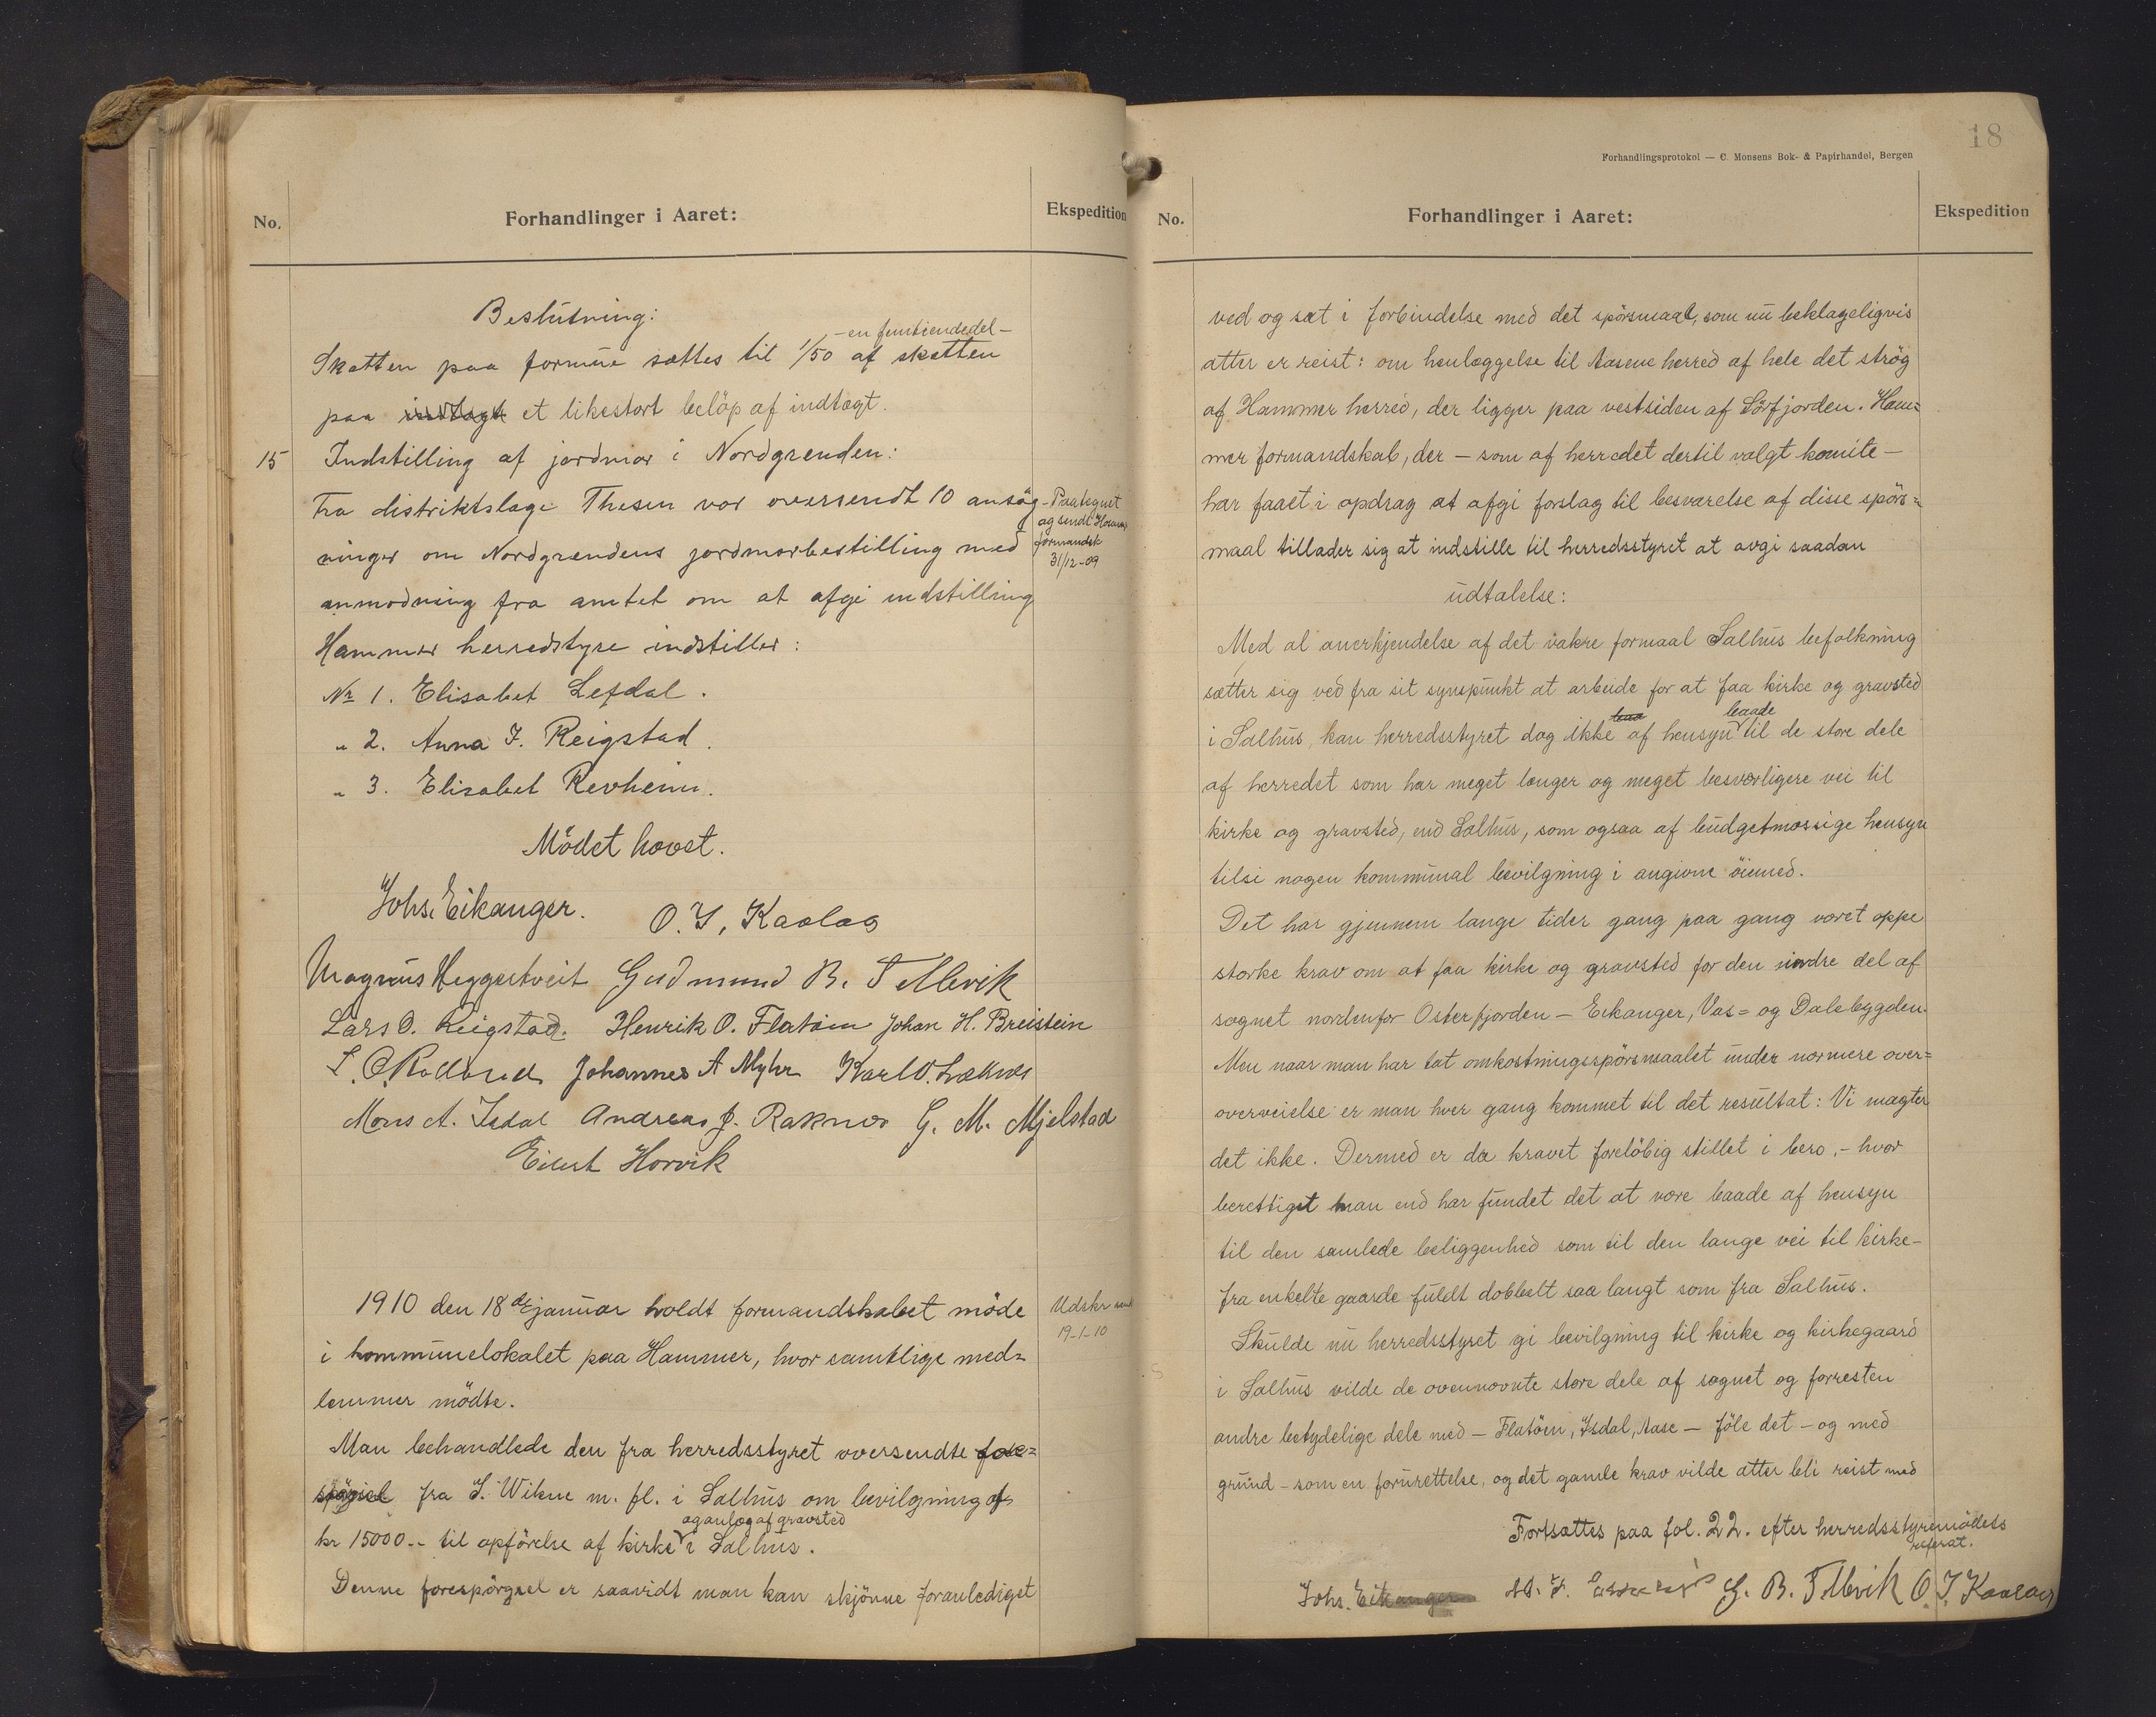 No.
Forhandlinger i Aaret:
Ekspedition
Beslutning:
-en femtiendedel-
Skatten paa formue sættes til 1/50 af skatten
paa indtægt et likestort beløp af indtægt.
15 Indstilling af jordmor i Nordgrenden:
Fra distriktslæge Thesen var oversendt 10 ansøg-
ninger om Nordgrændens jordmorbestilling med
anmodning fra amtet om at afgi indstilling
Paategnet
og sendt
formandsk
31/12-09
Hammer herredstyre indstiller:
Nr 1. Elisabet Lefdal.
" 2. Anna J. Reigstad.
" 3. Elisabet Revheim.
Mödet hævet.
Johs. Eikanger. O. J. Kaalaas
Magnus Heggertveit Gudmund B. Tellevik
Lars O. Reigstad. Henrik O. Flatöen Johan H. Breistein
Johannes A Myhr Karl O.
Mons A. Isdal Andreas J. Raknes G. M. Mjelstad
Eilert Horvik
1910 den 18de januar holdt formandskabet möde
i kommunelokalet paa Hammer, hvor samtlige med=
lemmer mödte.
Udskr
19-1-10
Man behandlede den fra herredsstyret oversendte fore=
spörsel fra J. Wikne m. fl. i Salhus om bevilgning af
og anlæg af gravsted
kr 15000.- til opförelse af kirke i Salhus.
Denne forespörgsel er saavidt man kan skjönne foranlediget
18
Forhandlingsprotokol — C. Monsens Bok- & Papirhandel, Bergen
No.
Forhandlinger i Aaret:
Ekspedition
ved og sæt i forbindelse med det spörsmaal, som nu beklageligvis
atter er reist: om henlæggelse til Aasene herred af hele det strög
af Hammer herred, der ligger paa vestsiden af Sörfjorden. Ham=
mer formandskab, der - som af herredet dertil valgt komite -
har faaet i opdrag at afgi forslag til besvarelse af disse spörs=
maal tillader sig at indstille til herredsstyret at avgi saadan
udtalelse:
Med al anerkjendelse af det vakre formaal Salhus befolkning
sætter sig ved fra sit synspunkt at arbeide for at faa kirke og gravsted
baade
i Salhus, kan herredsstyret dog ikke af hensyn til de store dele
af herredet som har meget længer og meget besværligere vei til
kirke og gravsted, end Salhus, som ogsaa af budgetmæssige hensyn
tilsi nogen kommunal bevilgning i angivne öiemed.
Det har gjennem lange tider gang paa gang været oppe
stærke krav om at faa kirke og gravsted for den nordre del af
sognet nordenfor Osterfjorden - Eikanger, Vas= og Dalebygden.
Men naar man har tat omkostningsspörsmaalet under nærmere over=
overveielse er man hver gang kommet til det resultat: Vi magter
det ikke. Dermed er da kravet foreløbig stillet i bero, - hvor
berettiget man end har fundet det at være baade af hensyn
til den samlede beliggenhed som til den lange vei til kirke -
fra enkelte gaarde fuldt dobbelt saa langt som fra Salhus.
Skulde nu herredsstyret gi bevilgning til kirke og kirkegaard
i Salhus vilde de ovennævnte store dele af sognet og forresten
andre betydelige dele med - Flatöen, Isdal, Aase - föle det - og med
grund - som en forurettelse, og det gamle krav vilde atter bli reist med
Fortsættes paa fol. 22. efter herredsstyremödets
referat.
Johs. Eikanger G. B. Tellevik O. J. Kaalaas